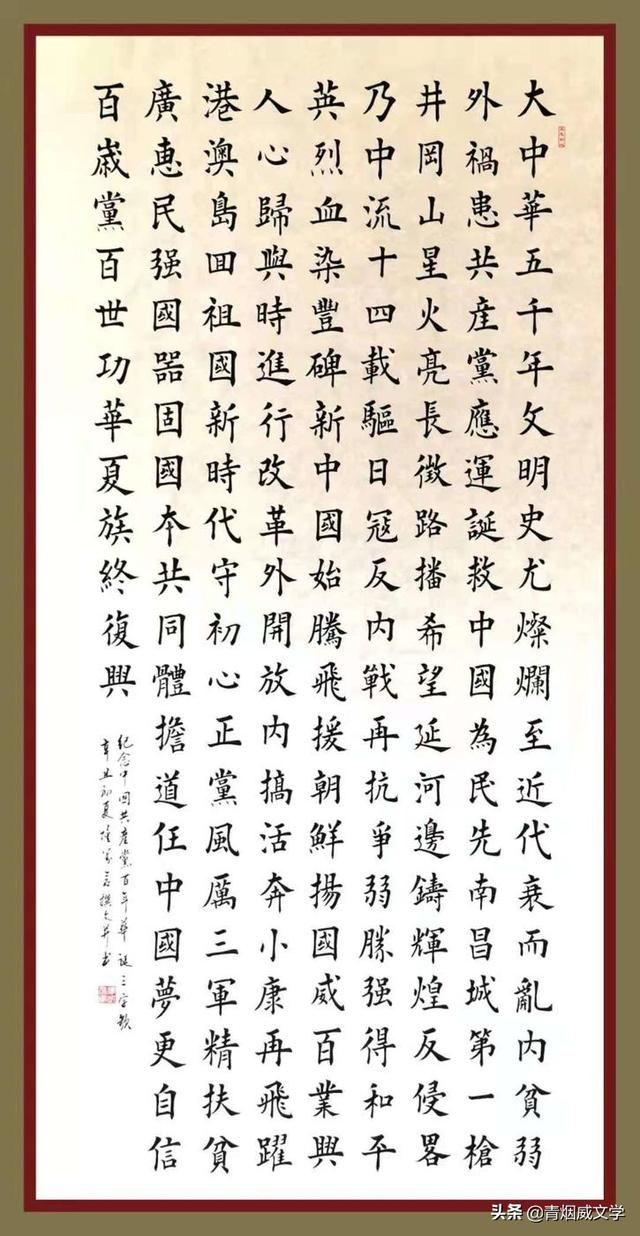 大中華五千年文明史尤燦爛至近代衰而亂内貧弱
外禍患共産黨應運誕救中國為民先南昌城第一槍
井岡山星火亮長徵路播希望延河邊鑄輝煌反侵畧
乃中流十四載驅日冦反内戰再抗爭弱勝强得和平
英烈血染豐碑新中國始騰飛援朝鮮揚國威百業興
人心歸與時進行改革外開放内搞活奔小康再飛躍
港澳島回祖國新時代守初心正黨風厲三軍精扶貧
廣惠民强國器固國本共同體擔道任中國夢更自信
百歲黨百世功華夏族終復興
紀念中國共産黨百年華誕三字
辛丑初夏撰文并书
头条@青烟威文学